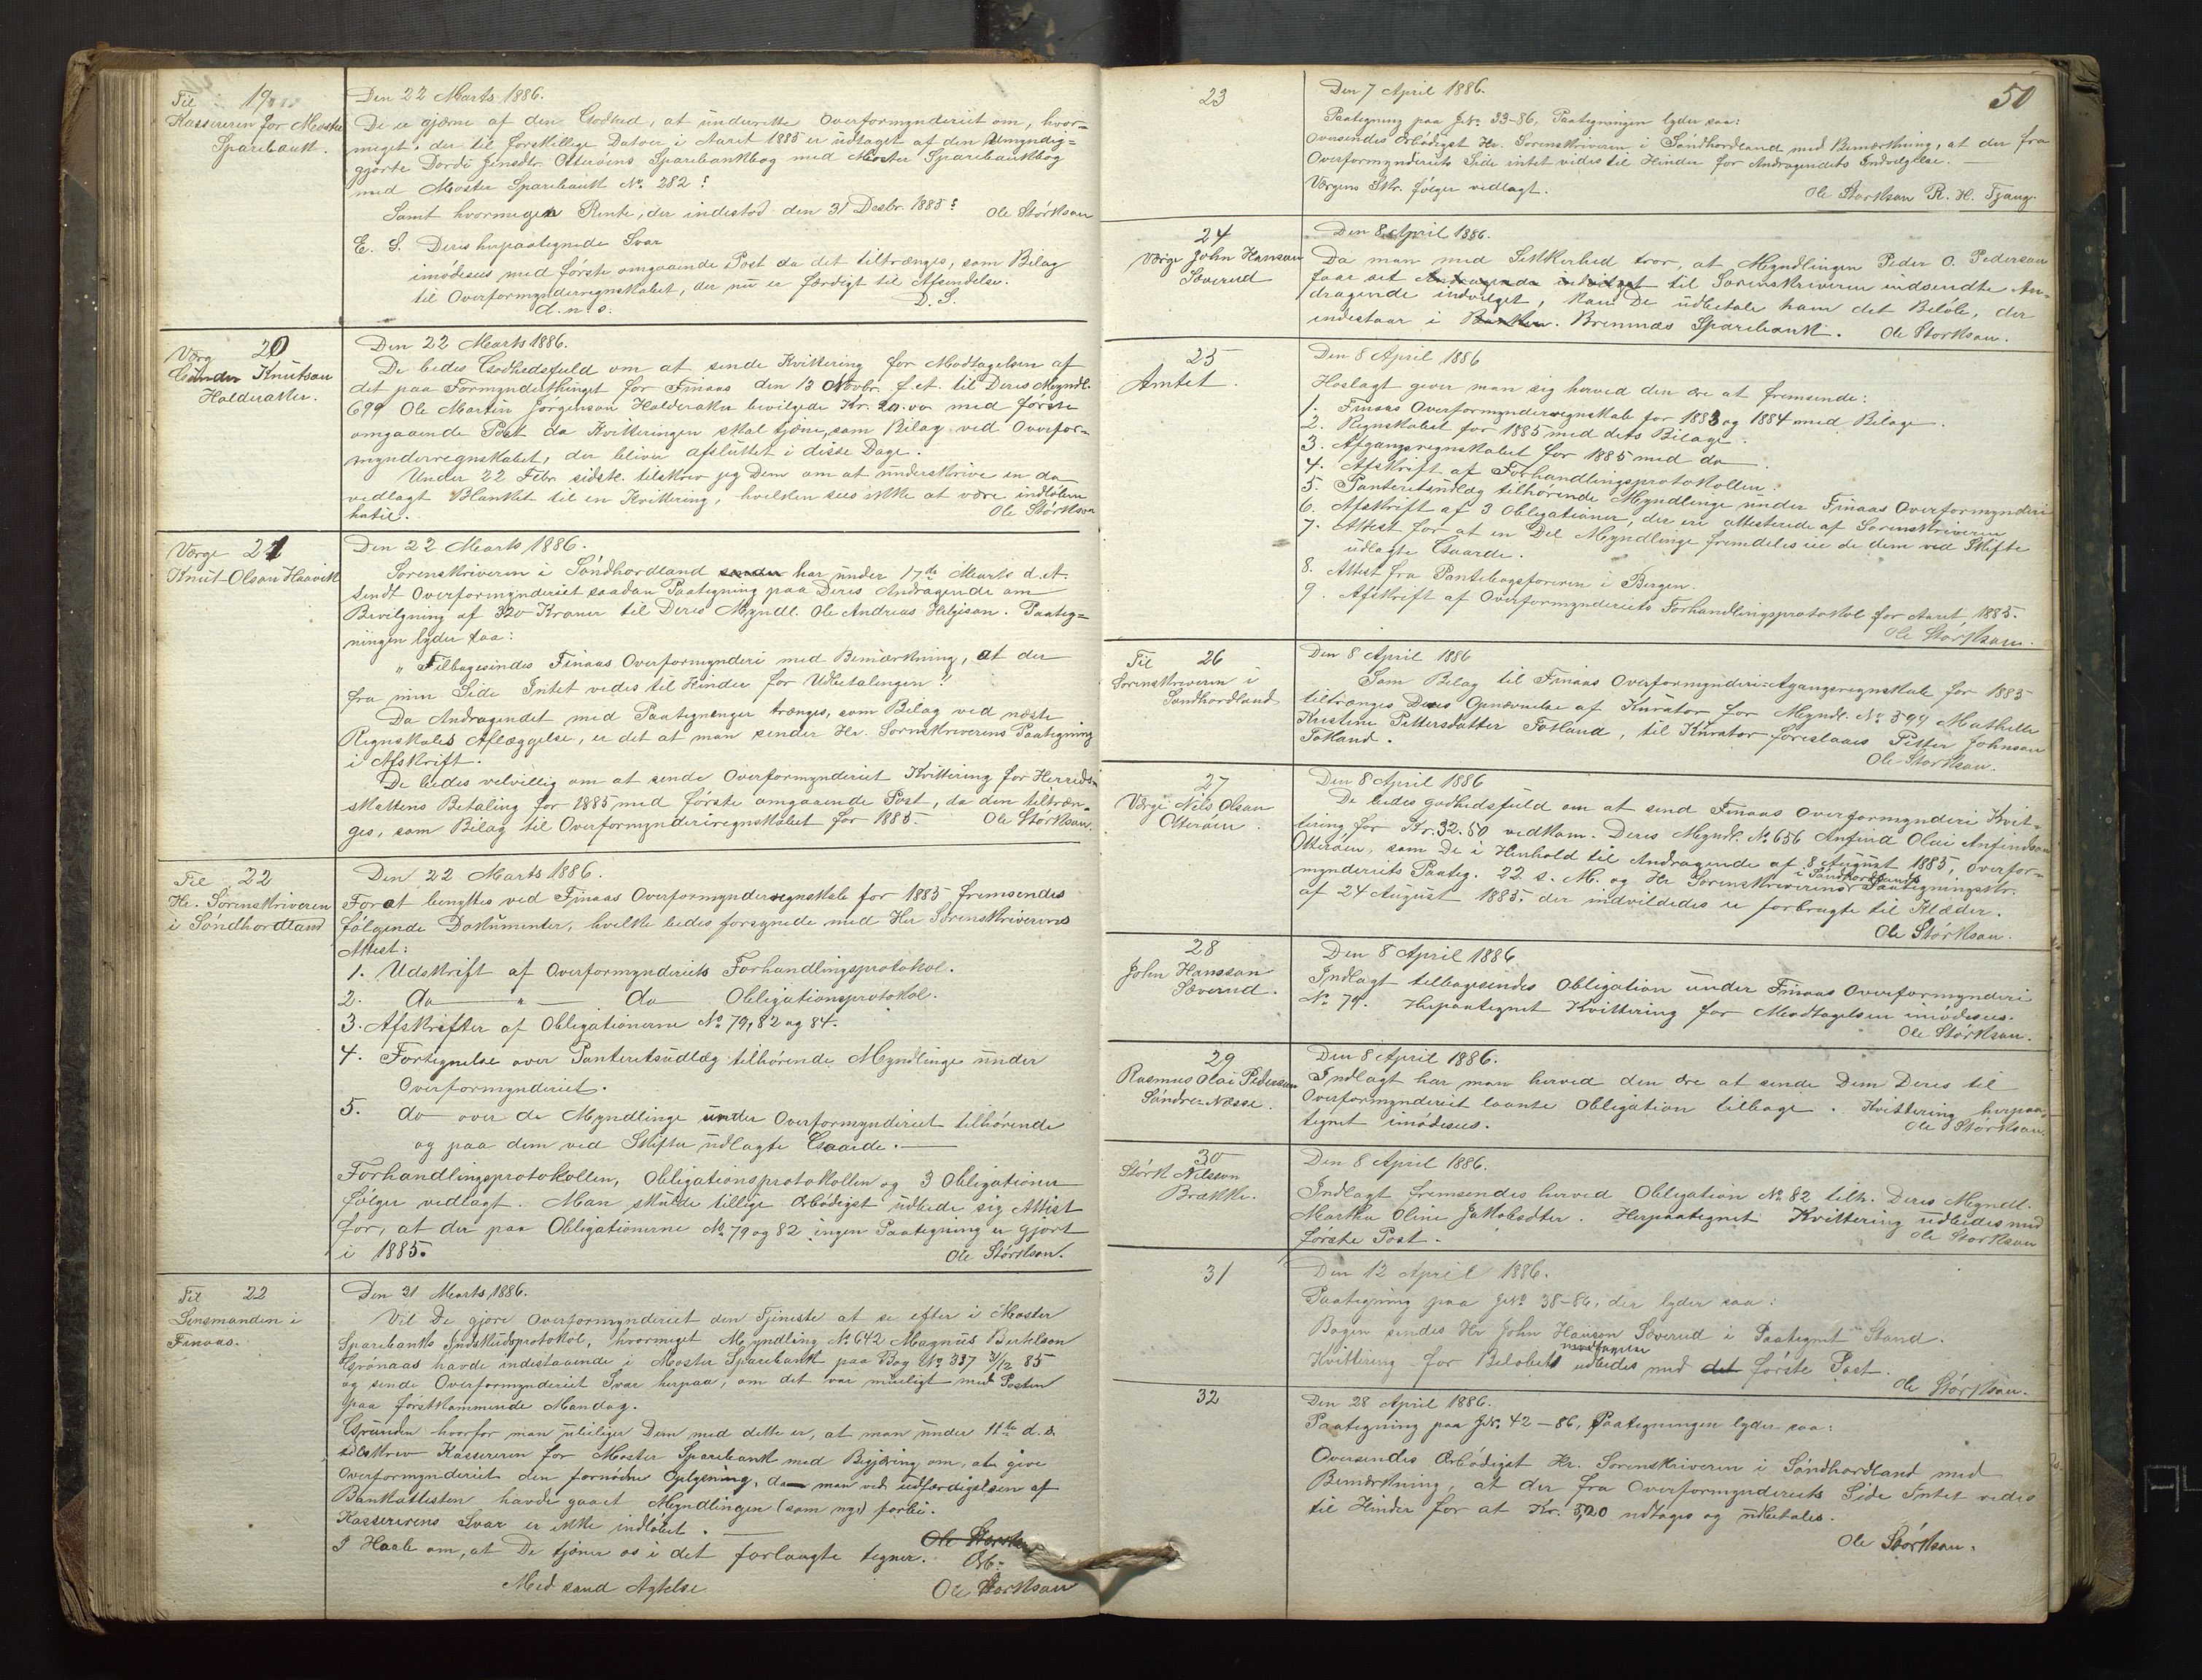 Til 19
Kassereren for Moster
Sparebank.
Den 22 Marts 1886.
De er gjærne af den Godhed, at underrette Overformynderiet om, hvor-
meget, der til forskillige Datoer i Aaret 1885 er udtaget af den umyndig=
gjorte Dordi Jensdtr. Otterøens Sparebankbog med Moster Sparebankbog
med Moster Sparebank No. 282?
Samt hvormegen Rente, der indestod den 31 Decbr. 1885?
Ole Størkson
E. S. Deres herpaategnede Svar
imødesees med første omgaaende Post da det tiltrænges, som Bilag
til Overformynderregnskabet, der nu er færdigt til Afsendelse.
d. n. s. D. S.
Værg 20
Gunder Knutson
Holderaker.
Den 22 Marts 1886.
De bedes Godhedsfuld om at sende Kvittering for Modtagelsen af
det paa Formynderthinget for Finaas den 13 Novbr. f. A. til Deres Myndl.
699 Ole Martin Jørgenson Holderaker bevilgede Kr. 20.00 med første
omgaaende Post da Kvitteringen skal tjene, som Bilag ved Overfor-
mynderregnskabet, der bliver afsluttet i disse Dage.
Under 22 Febr. sidstl. tilskrev jeg Dem om at underskrive en da
vedlagt Blanket til en Kvittering, hvilken sees ikke at være indløben
hertil.
Ole Størkson
Værge 21
Knut Olson Haavik
Den 22 Marts 1886.
Sorenskriveren i Søndhordland sender har under 17de Marts d. A.
sendt Overformynderiet saadan Paategning paa Deres Andragende om
Bevilgning af 320 Kroner til Deres Myndl. Ole Andreas Helgeson. Paateg=
ningen lyder saa:
"Tilbagesendes Finaas Overformynderi med Bemærkning, at der
fra min Side Intet vides til Hinder for Udbetalingen".
Da Andragendet med Paategninger trænges, som Bilag ved næste
Regnskabs Aflæggelse, er det at man sender Hr. Sorenskriverens Paategning
i Afskrift.
De bedes velvillig om at sende Overformynderiet Kvittering for Herreds-
skattens Betaling for 1885 med første omgaaende Post, da den tiltræn-
ges, som Bilag til Overformynderiregnskabet for 1885.
Ole Størkson.
Til 22
Hr. Sorenskriveren
i Søndhordland
Den 22 Marts 1886.
For at benyttes ved Finaas Overformynderregnskab for 1885 fremsendes
følgende Dokumenter, hvilke bedes forsynede med Hr Sorenskriverens
Attest:
1. Udskrift af Overformynderiets Forhandlingsprotokol.
2. do — " — do Obligationsprotokol.
3. Afskrifter af Obligationerne No. 79, 82 og 84.
4. Fortegnelse over Panteretsudlæg tilhørende Myndlinge under
Overformynderiet.
5. do over de Myndlinge under Overformynderiet tilhørende
og paa dem ved Skifte udlagte Gaarde.
Forhandlingsprotokollen, Obligationsprotokollen og 3 Obligationer
følger vedlagt. Man skulde tillige Ærbødigst udbede sig Attest
for, at der paa Obligationerne No. 79 og 82 ingen Paategning er gjort
i 1885.
Ole Størkson.
Til 22
Lensmanden i
Finaas.
Den 31 Marts 1886.
Vil De gjøre Overformynderiet den Tjeneste at se efter i Moster
Sparebanks Indskudsprotokol, hvormeget Myndling No 642 Magnus Bertelson
Grønaas havde indestaaende i Moster Sparebank paa Bog No 337 31/12 85
og sende Overformynderiet Svar herpaa, om det var mueligt med Posten
paa førstkommende Mandag.
Grunden hvorfor man uleiliger Dem med dette er, at man under 11te d. s.
tilskrev Kassereren for Moster Sparebank med Begjæring om, at give
Overformynderiet den fornødne Oplysning, da man ved udfærdigelsen af
Bankattesten havde gaaet Myndlingen (som nye) forbi.
Kassererens Svar er ikke indløbet.
I Haab om, at De tjener os i det forlangte tegner. Ole Størkson
Ærb.
Med sand Agtelse
Ole Størkson
50
23
Den 7 April 1886.
Paategning paa J.No. 33-86, Paategningen lyder saa:
Oversendes Ærbødigst Hr. Sorenskriveren i Søndhordland med Bemærkning, at der fra
Overformynderiets Side intet vides til Hinder for Andragendets Indvilgelse.
Værgens Skr. følger vedlagt.
Ole Størkson R. H. Tjang.
24
Værge John Hanson
Søverud
Den 8 April 1886.
Da man med Sikkerhed tror, at Myndlingen Peder O. Pederson
faar sit Andragende indvilget til Sorenskriveren indsendte An-
dragende indvilget, kan De udbetale ham det Beløb, der
indestaar i Banken. Bremnæs Sparebank. Ole Størkson.
25
Amtet.
Den 8 April 1886
Hoslagt giver man sig herved den Ære at fremsende:
1. Finaas Overformynderregnskab for 1883 og 1884 med Bilage.
2. Regnskabet for 1885 med dets Bilage.
3. Afgangsregnskabet for 1885 med do
4. Afskrift af Forhandlingsprotokollen.
5. Panteretsudlæg tilhørende Myndlinge under Finaas Overformynderi
6. Afskrift af 3 Obligationer, der ere attesterede af Sorenskriveren
7. Attest for at en Del Myndlinge fremdeles eie de dem ved Skifte
udlagte Gaarde.
8. Attest fra Pantebogsføreren i Bergen.
9. Afskrift af Overformynderiets Forhandlingsprotokol for Aaret 1885.
Ole Størkson.
Til 26
Sorenskriveren i
Søndhordland
Den 8 April 1886
Som Bilag til Finaas Overformynderi=Agangsregnskab for 1885
tiltrænges Deres Opnævnelse af Kurator for Myndl. No 594 Mathelle
Kristine Pettersdatter Totland, til Kurator foreslaaes Petter Johnson
Totland.
Ole Størkson.
27
Værge Nils Olson
Otterøen.
Den 8 April 1886
De bedes godhedsfuld om at send Finaas Overformynderi Kvit-
tering for Kr. 32.50 vedkom. Deres Myndl. No 656 Anfind Olai Anfindson
Otterøen, som De i Henhold til Andragende af 8 August 1885, Overfor-
mynderiets Paateg. 22 s. M. og Hr Sorenskriverens i Søndhordlands Paategningsskr.
af 24 August 1885. der indvildedes er forbrugte til Klæder.
Ole Størkson.
28
John Hansson
Søverud.
Den 8 April 1886
Indlagt tilbagesendes Obligation under Finaas Overformynderi
No 79. Herpaategnet Kvittering for Modtagelsen imødesees.
Ole Størkson.
29
Rasmus Olai Pederson
Søndre Næsse.
Den 8 April 1886.
Indlagt har man herved den Ære at sende Dem Deres til
Overformynderiet laante Obligation tilbage. Kvittering herpaa-
tegnet imødesees.
Ole Størkson.
30
Størk Nilsson
Brække.
Den 8 April 1886.
Indlagt fremsendes herved Obligation No 82 tilh. Deres Myndl.
Martha Oline Jakobsdter. Herpaategnet Kvittering udbedes med
første Post.
Ole Størkson
31
Den 12 April 1886.
Paategning paa J.No 38-86, der lyder saa:
Bogen sendes Hr John Hanson Søverud i Paategnet Stand.
Kvittering for Beløbets modtagelse udbedes med det første Post.
Ole Størkson.
32
Den 28 April 1886.
Paategning paa J.No. 42-86, Paategningen lyder saa:
Oversendes Ærbødigst Hr. Sorenskriveren i Søndhordland med
Bemærkning, at der fra Overformynderiets Side Intet vides
til Hinder for at Kr. 5,20 udtages og udbetales.
Ole Størkson.